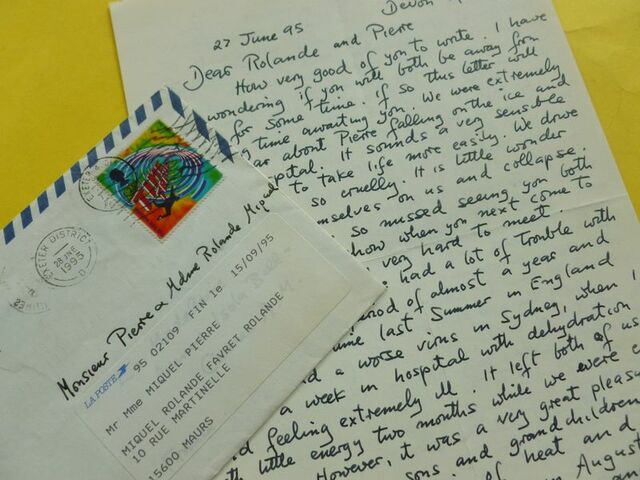 Devon
27 June 95
Dear Rolande and Pierre
How very good of you to write. I have
wondering if you will both be away from
for some time. If so this letter will
time awaiting you. We were extremely
about Pierre falling on the ice and
It sounds a very sensible
to take life more easily. We drove
so cruelly. It is little wonder
on us and collapse.
so missed seeing you both
how when you next come to
very hard to meet.
had a lot of trouble with
of almost a year and
last Summer in England
a worse virus in Sydney, when I
a week in hospital with dehydration
feeling extremely ill. It left both of us
little energy two months while we were
However, it was a very great pleasure
sons and grandchildren
of heat and
in August
EXETER
EXETER DISTRICT
28 JNE
1995
D
Monsieur Pierre & Mdme Rolande Miquel
LA POSTE
95 02109 FIN le 15/09/95
Mr Mme MIQUEL PIERRE
MIQUEL ROLANDE FAVRET ROLANDE
10 RUE MARTINELLE
15600 MAURS